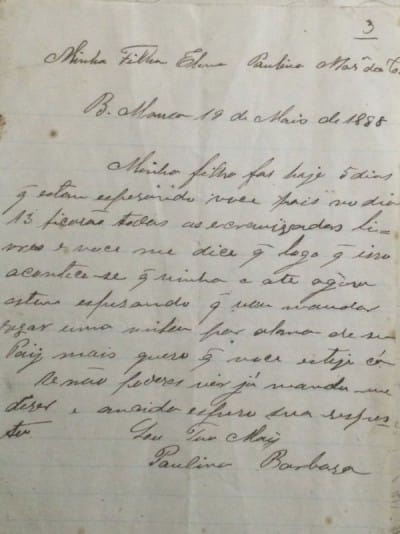 3
Minha Filha Elena Paulina
B. Manca 19 de Maio de 1888
Minha filha fas hoje 5 dias
q̃ estou esperando voce pois no dia
13 ficarão todas as escravizadas li-
vres e voce me dice q̃ logo q̃ isso
acontice-se q̃ vinha e ate agora
estou esperando q̃ vou mandar
rezar uma missa por alma de seu
Paiz mais quero q̃ voce esteje cá
se não poderes vir já manda-me
diser e ancioda espero sua respos-
ta
Sou Tua Maỹ
Paulina Barbosa